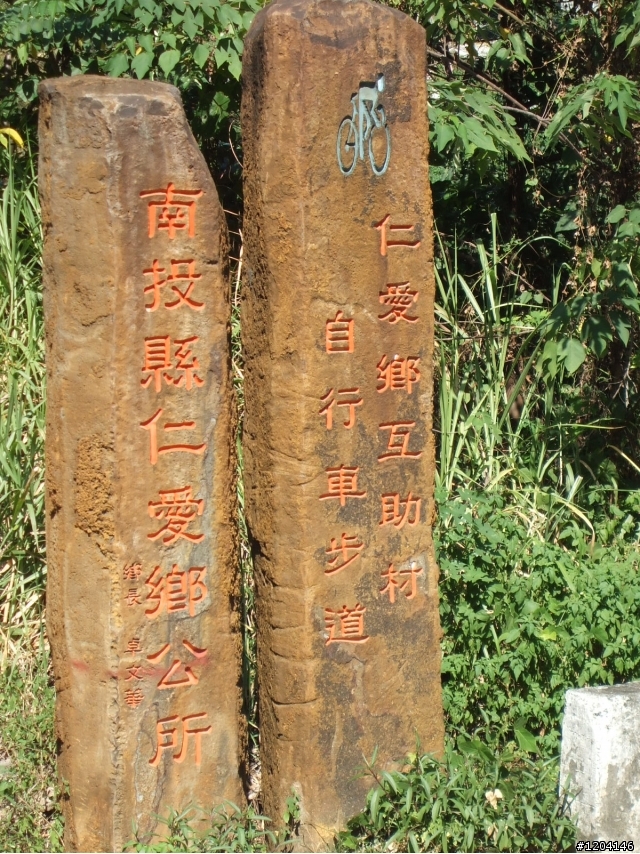 仁愛鄉互助村
自行車步道
南投縣仁愛鄉公所
鄉長 卓文華
#1204146